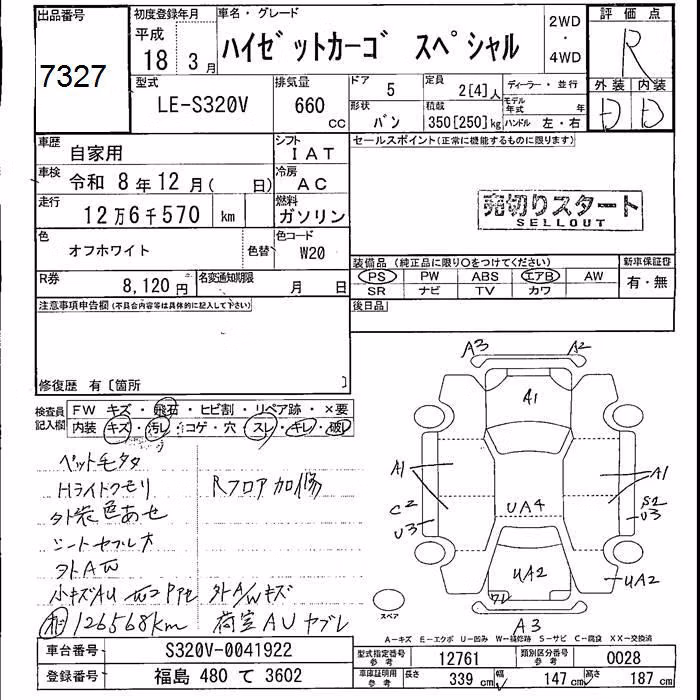 出品番号
7327
初度登録年月
平成
18年 3月
車名・グレード
ハイゼットカーゴ スペシャル
2WD
・
4WD
評価点
R
外装 内装
D D
型式
LE-S320V
排気量
660 CC
ドア
5
形状
バン
定員
2[4]人
積載
350[250]kg
ディーラー・並行
モデル年式 年
ハンドル 左・右
車歴
自家用
シフト
IAT
車検
令和 8年12月( 日)
冷房
AC
走行
12万6千570 km
燃料
ガソリン
色
オフホワイト
色替
色コード
W20
R券
8,120円
名変通知期限
月 日
セールスポイント(正常に機能するものに限ります)
売切りスタート
SELLOUT
装備品(純正品に限り○をつけてください)
PS PW ABS エアB AW
SR ナビ TV カワ
新車保証書
有・無
後日品
注意事項申告欄(不具合内容等は具体的に記入して下さい)
修復歴 有〔箇所 〕
検査員記入欄
FW キズ・飛石・ヒビ割・リペア跡・×要
内装 キズ・汚レ・コゲ・穴・スレ・キレ・破レ
ペット毛タタ
Hライトクモリ Rフロア加修
外装色あせ
シートヤブレ大
ヨトAW
小キズAU 外A/Wキズ
126568km 荷室AUヤブレ
A3 A2
A1
A1 A1
UA4
C2 U3
S2 U3
UA2
UA2
A3
スペア
A-キズ E-エクボ U-凹み W-補修跡 S-サビ C-腐食 XX-交換済
車台番号
S320V-0041922
登録番号
福島 480 て 3602
型式指定番号 参考
12761
類別区分番号 参考
0028
車庫証明用 参考
長さ 339 cm 幅 147 cm 高さ 187 cm